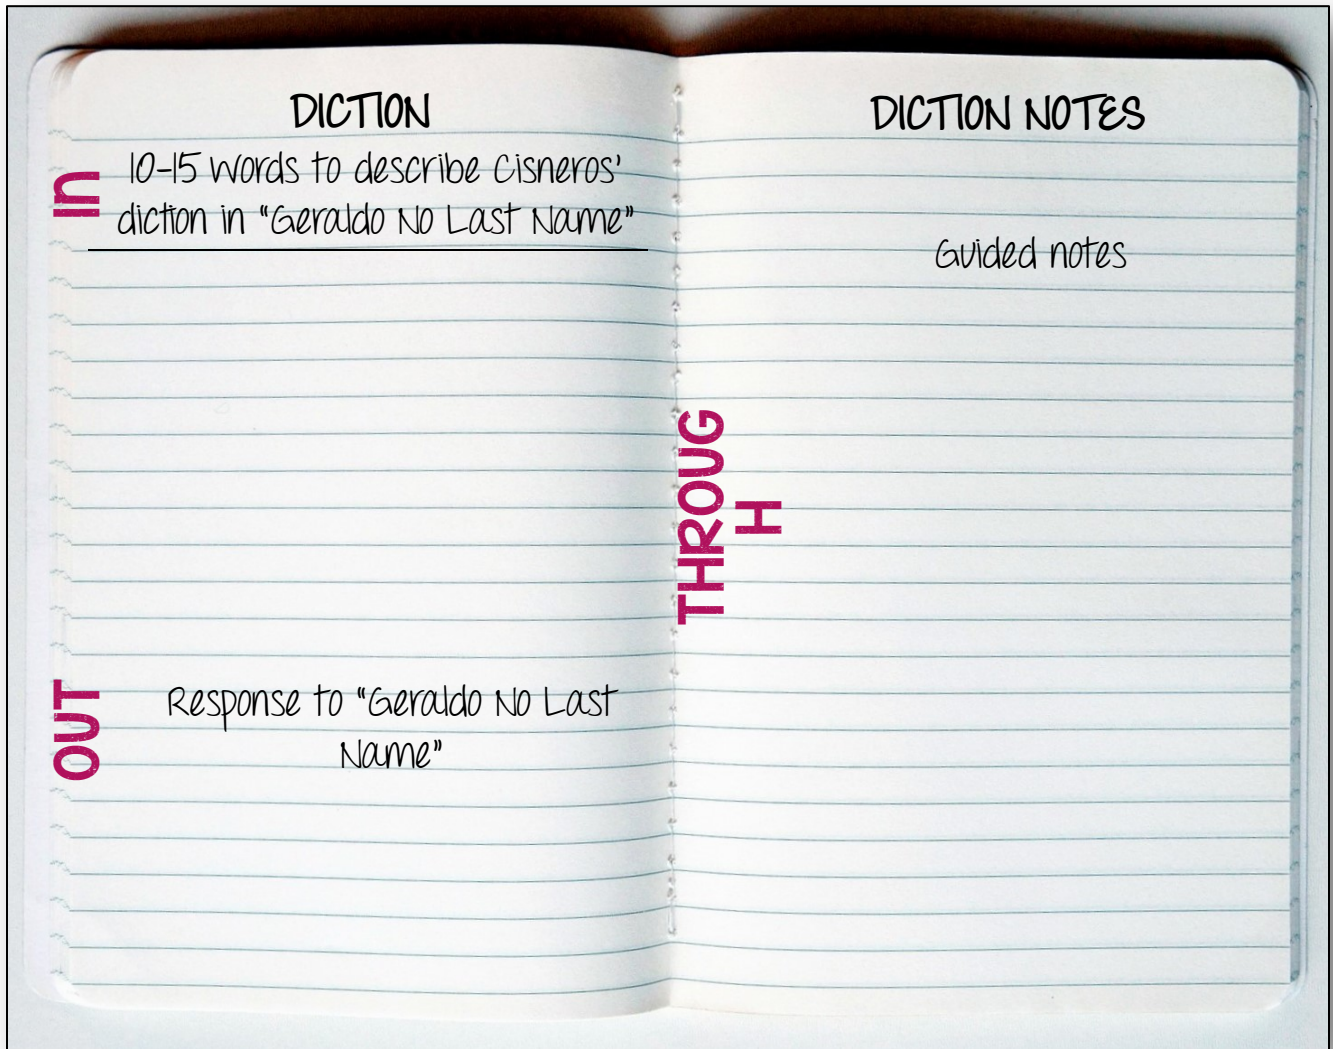 DICTION
In
10-15 words to describe Cisneros'
diction in "Geraldo No Last Name"
OUT
Response to "Geraldo No Last
Name"
THROUG
H
DICTION NOTES
Guided notes